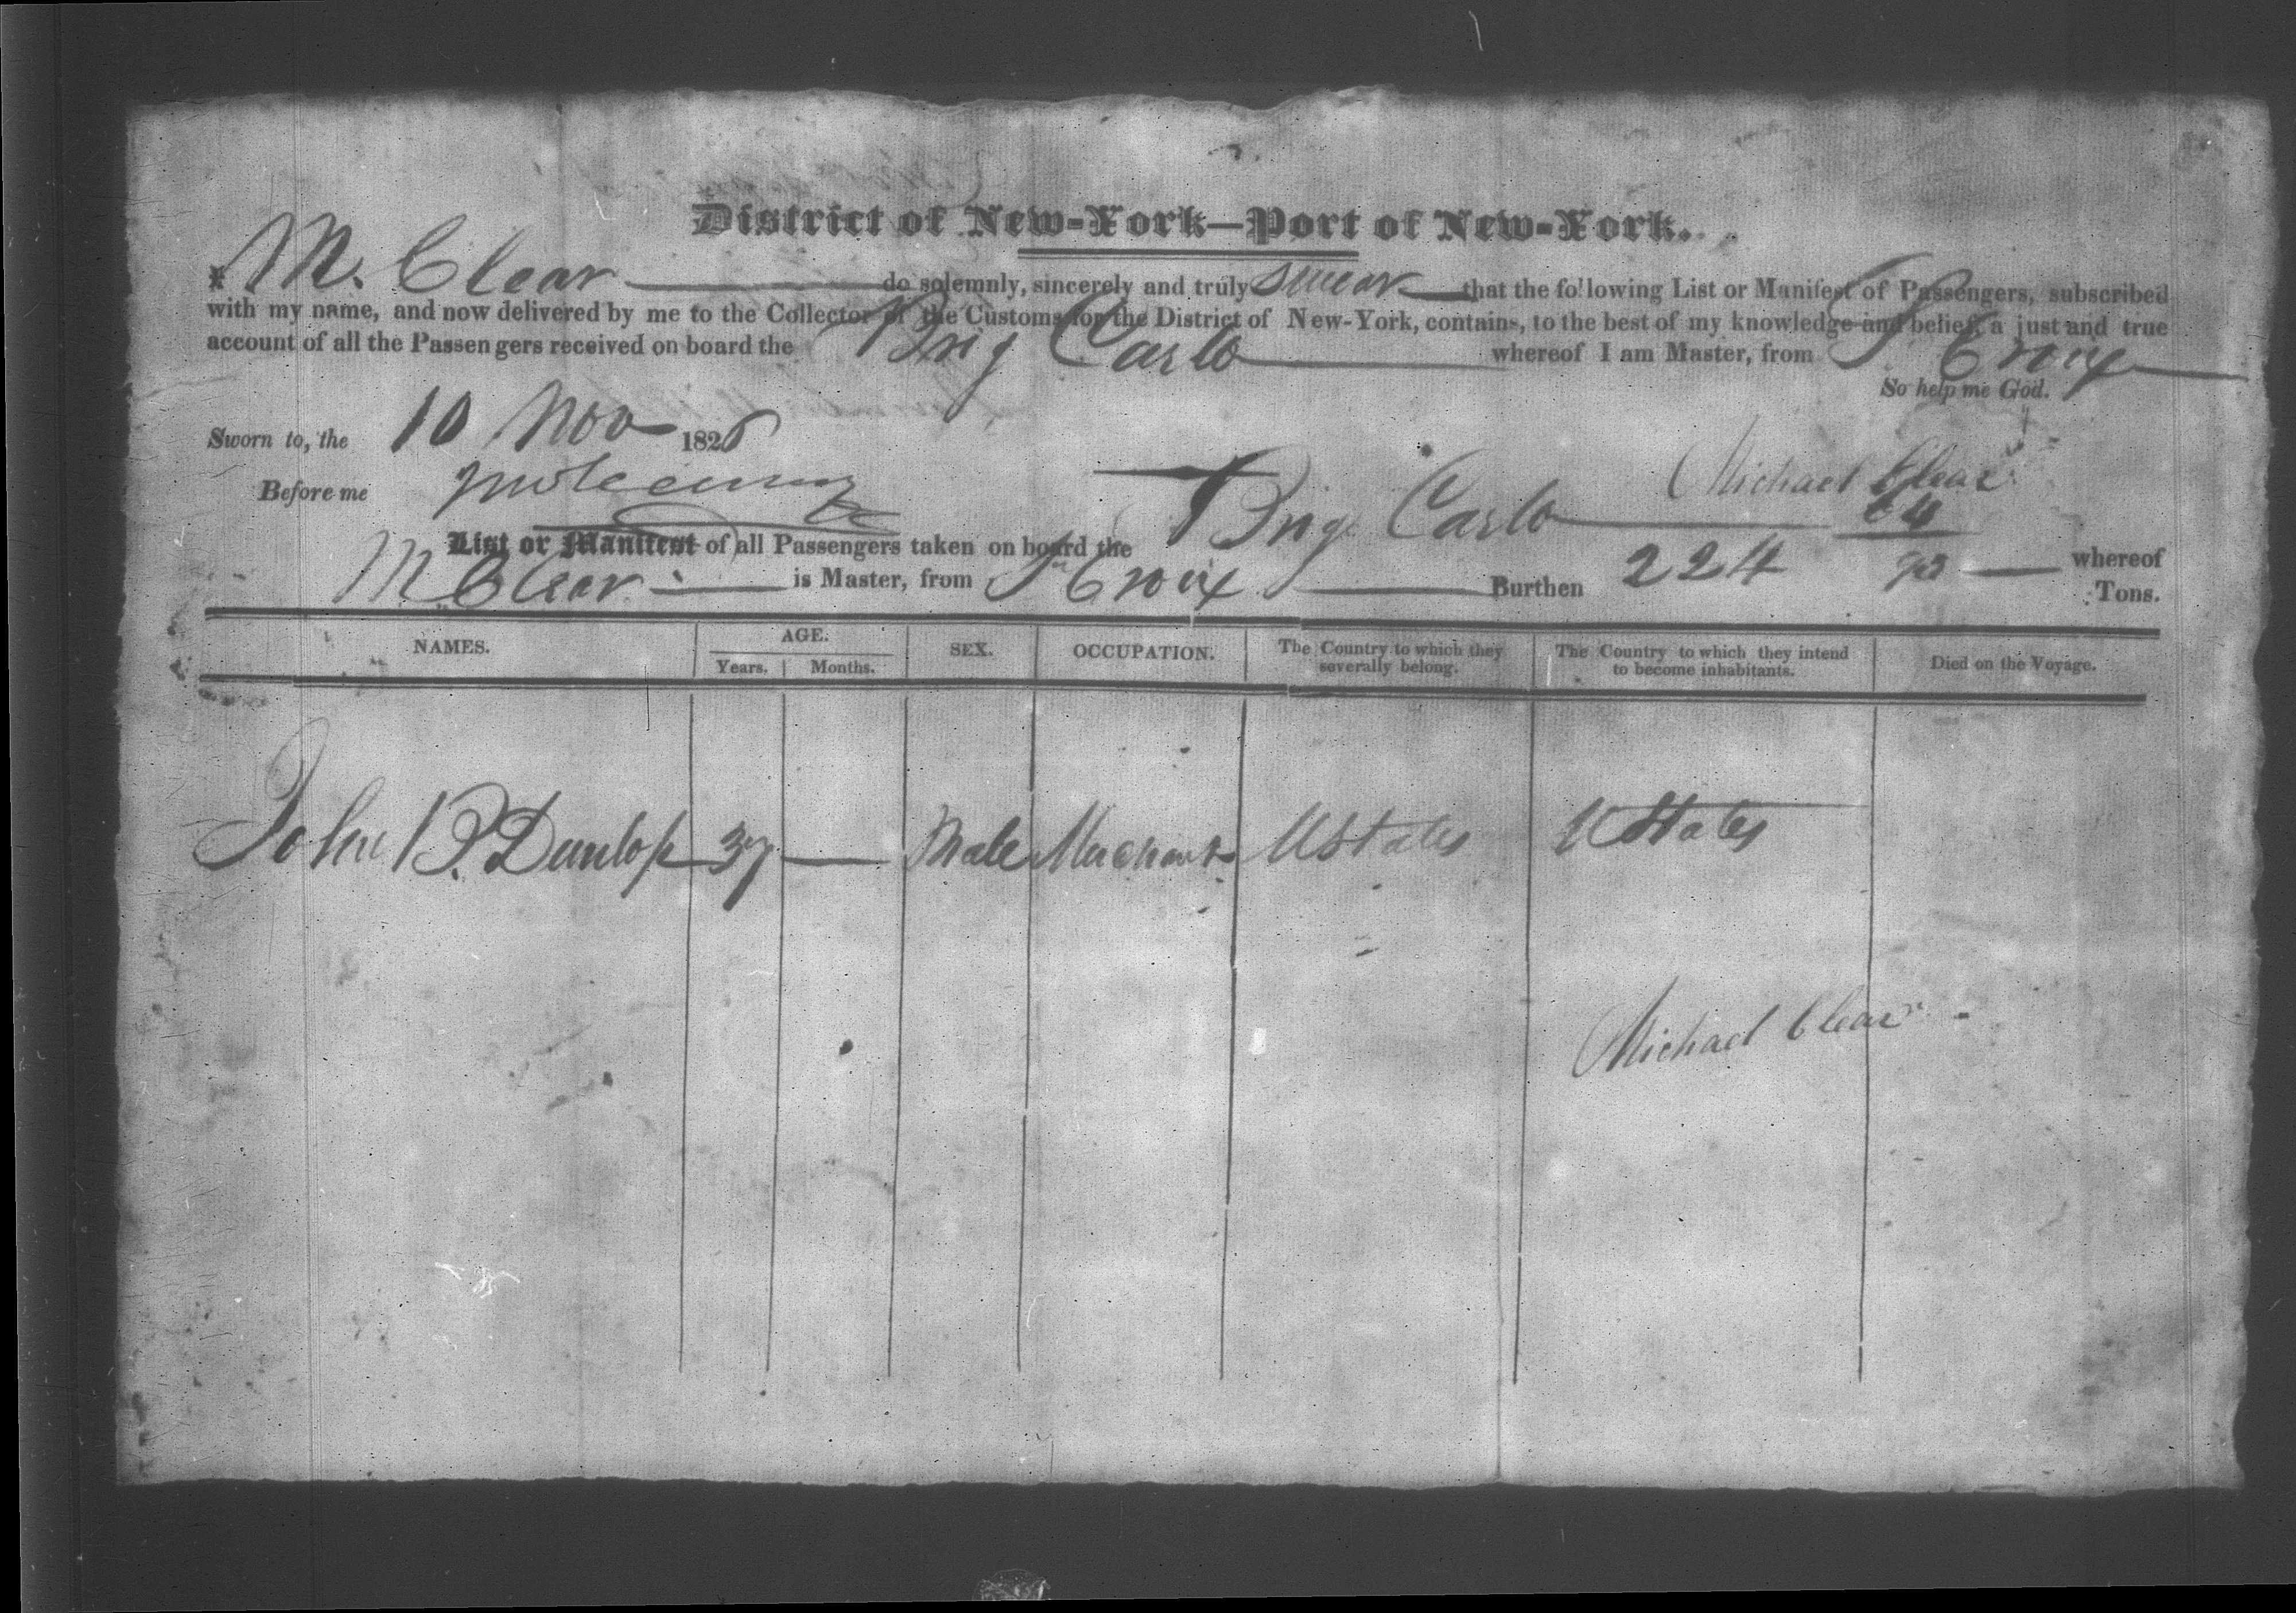 District of New-York—Port of New-York.
I M. Clear do solemnly, sincerely and truly swear that the following List or Manifest of Passengers, subscribed
with my name, and now delivered by me to the Collector of the Customs for the District of New-York, contains, to the best of my knowledge and belief, a just and true
account of all the Passengers received on board the Brig Carlo whereof I am Master, from St Croix
So help me God.
Sworn to, the 10 Nov 1826
Michael Clear
Before me
List or Manifest of all Passengers taken on board the Brig Carlo whereof
M Clear is Master, from St Croix Burthen 224 64/95 Tons.
NAMES. AGE. SEX. OCCUPATION. The Country to which they severally belong. The Country to which they intend to become inhabitants. Died on the Voyage.
Years. Months.
John P. Dunlop 37 — Male Merchant UStates UStates
Michael Clear